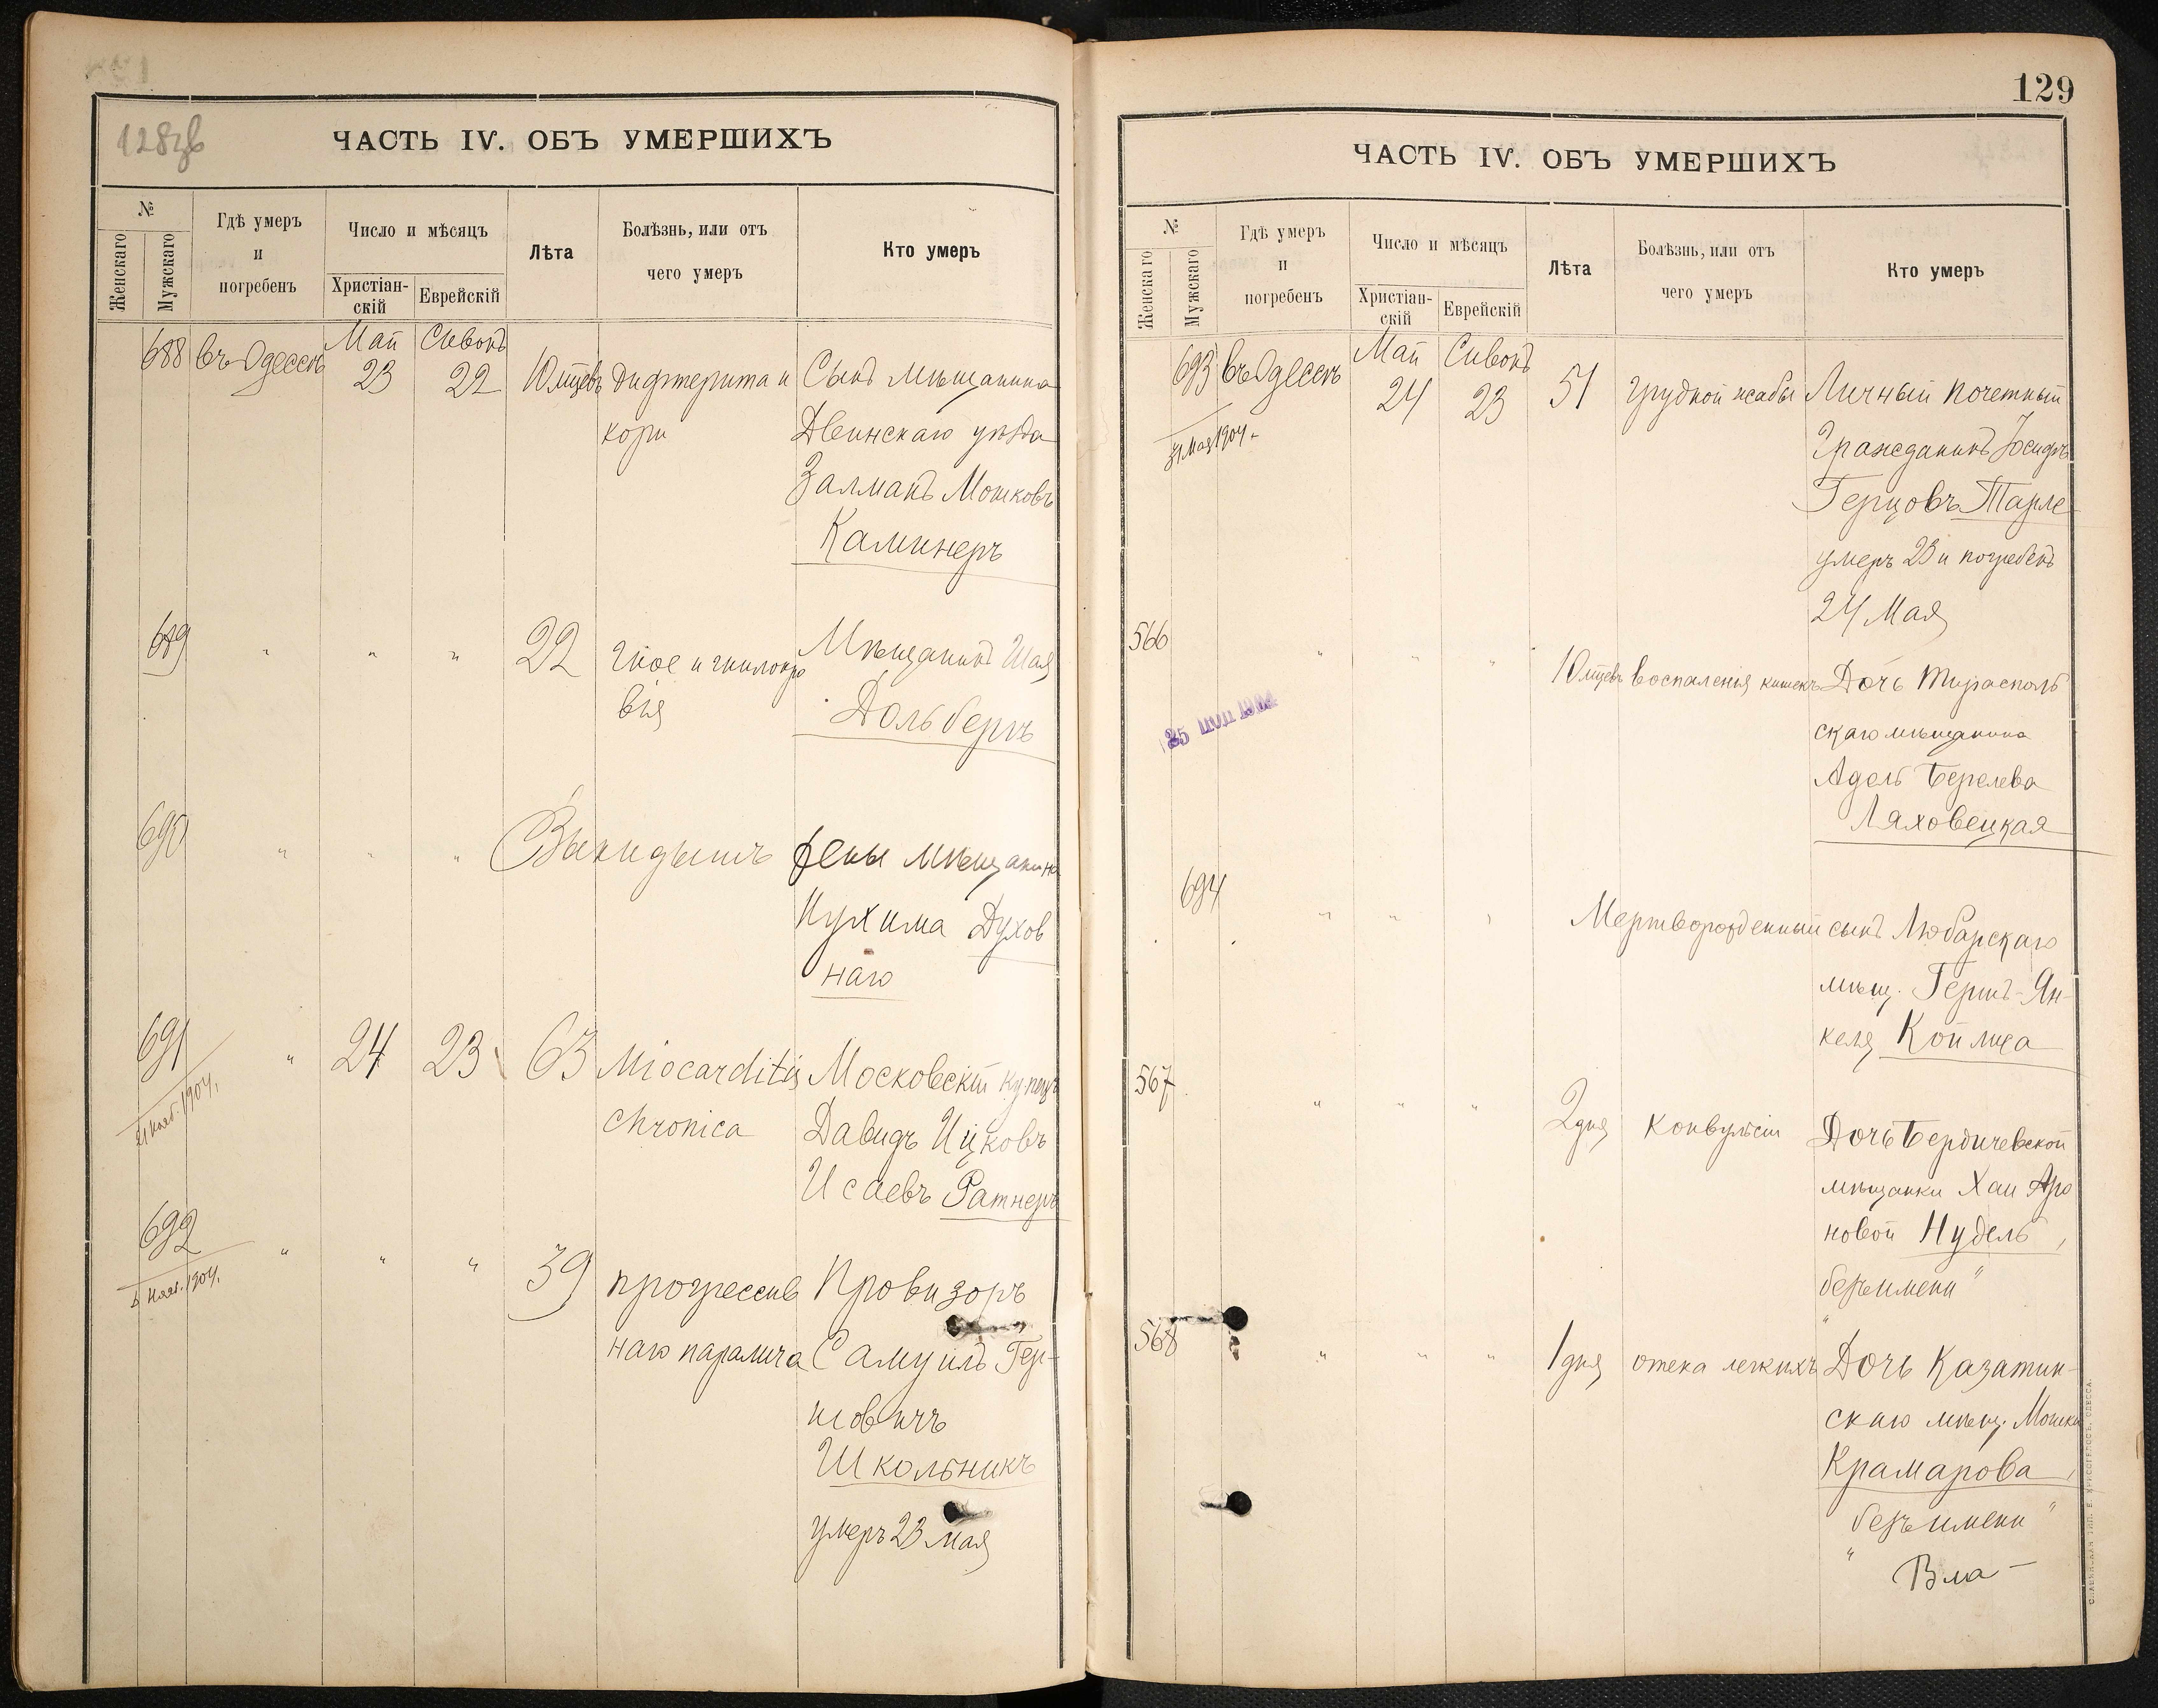 128зв
ЧАСТЬ IV. ОБЪ УМЕРШИХЪ
№
Женскаго
Мужскаго
Гдѣ умеръ
и
погребенъ
Число и мѣсяцъ
Христіан-
скій
Еврейскій
Лѣта
Болѣзнь, или отъ
чего умеръ
Кто умеръ
688 въ Одессѣ Май 23 Сивонъ 22 10 мцевъ Дифтерита и
кори
Сынъ мѣщанина
Двинскаго уѣзда
Залманъ Мошковъ
Каминеръ
689 " " " 22 гное и гнилокро
вія
Мѣщанинъ Шая
Дольбергъ
690 " " " Выкидышъ жены мѣщанина
Нухима Духов
наго
691 " 24 23 63 Miocarditis
chronica
21 нояб. 1904.
Московскій купецъ
Давидъ Ицковъ
Исаевъ Ратнеръ
692 " " " 39 прогрессив
наго паралича
нояб. 1904.
Провизоръ
Самуилъ Гер-
шовичъ
Школьникъ
умеръ 23 мая
129
ЧАСТЬ IV. ОБЪ УМЕРШИХЪ
№
Женскаго
Мужскаго
Гдѣ умеръ
и
погребенъ
Число и мѣсяцъ
Христіан-
скій
Еврейскій
Лѣта
Болѣзнь, или отъ
чего умеръ
Кто умеръ
693 въ Одессѣ Май 24 Сивонъ 23 51 грудной жабы
31 мая 1904.
Личный почетный
Гражданинъ Іосифъ
Герцовъ Тарле
умеръ 23 и погребенъ
24 Мая
566 " " " 10 мцевъ воспаленія кишекъ
Дочь Тирасполь
скаго мѣщанина
Адель Берелева
Ляховецкая
694 " " " Мертворожденный сынъ Любарскаго
мѣщ. Гершъ-Ян-
келя Койлиса
567 " " " 2 дня конвульсіи
Дочь Бердичевской
мѣщанки Хаи Аро
новой Нудель,
безъ имени"
568 " " " 1 дня отека легкихъ
Дочь Казатин-
скаго мѣщ. Мошки
Крамарова,
безъ имени"